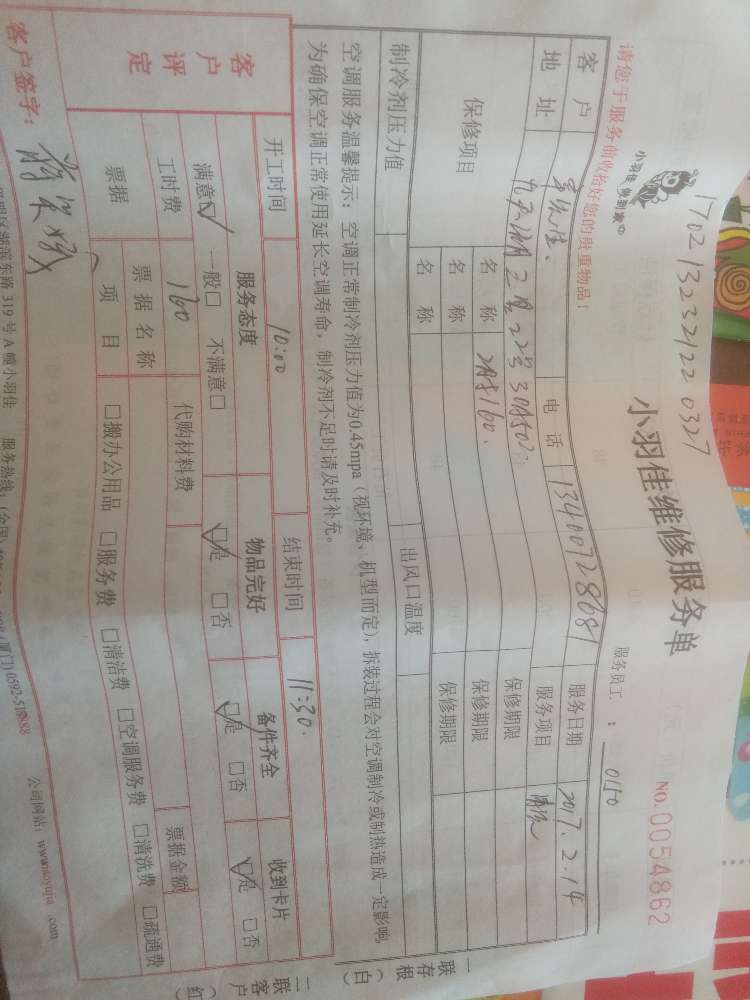 1702132321220327
小羽佳®
鱼到家
小羽佳维修服务单
NO.0054862
请您于服务前收拾好您的贵重物品!
服务员工 : 0150
客户 电话 13400728081 服务日期 2017.2.14
地址 22号 502 服务项目 清洗
保修项目 名称 160. 保修期限
名称 保修期限
名称 保修期限
制冷剂压力值 出风口温度
空调服务温馨提示:空调正常制冷剂压力值为0.45mpa(视环境、机型而定),拆装过程会对空调制冷或制热造成一定影响,
为确保空调正常使用延长空调寿命,制冷剂不足时请及时补充。
一联存根(白)
二联客户(红)
客户评定
开工时间 10:00 结束时间 11:30.
服务态度 物品完好 备件齐全 收到卡片
满意☑ 一般□ 不满意□ ☑是 □否 ☑是 □否 ☑是 □否
工时费 160 代购材料费
票据 票据名称 票据金额
项目 □搬办公用品 □服务费 □清洁费 □空调服务费 □清洗费 □疏通费
客户签字:
湖滨东路319号A幢小羽佳 服务热线:(全国) (厦门)0592-5
公司网站:www.xoyujia.com